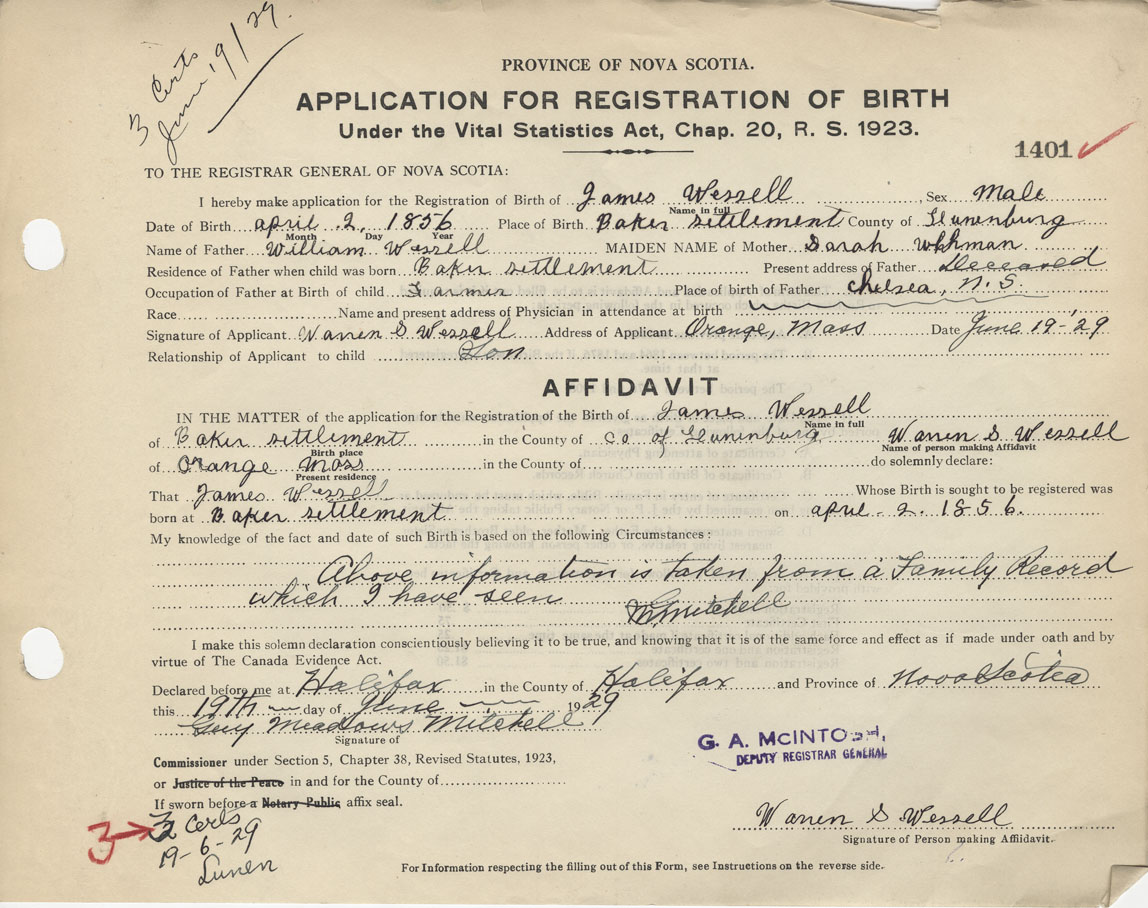 3 Certs
June 19/29
PROVINCE OF NOVA SCOTIA.
APPLICATION FOR REGISTRATION OF BIRTH
Under the Vital Statistics Act, Chap. 20, R. S. 1923.
1401
TO THE REGISTRAR GENERAL OF NOVA SCOTIA:
I hereby make application for the Registration of Birth of James Wessell, Sex Male
Name in full
Date of Birth april 2, 1856 Place of Birth Baker settlement County of Lunenburg
Month Day Year
Name of Father William Wessell MAIDEN NAME of Mother Sarah
Residence of Father when child was born Baker settlement Present address of Father Deceased
Occupation of Father at Birth of child Farmer Place of birth of Father Chelsea, N.S.
Race Name and present address of Physician in attendance at birth
Signature of Applicant Warren S Wessell Address of Applicant Orange, Mass Date June 19-'29
Relationship of Applicant to child Son
AFFIDAVIT
IN THE MATTER of the application for the Registration of the Birth of James Wessell
Name in full
of Baker settlement in the County of co of Lunenburg Warren S Wessell
Birth place Name of person making Affidavit
of Orange Mass in the County of do solemnly declare:
Present residence
That James Wessell Whose Birth is sought to be registered was
born at Baker settlement on april - 2. 1856.
My knowledge of the fact and date of such Birth is based on the following Circumstances:
Above information is taken from a Family Record
which I have seen Mitchell
I make this solemn declaration conscientiously believing it to be true, and knowing that it is of the same force and effect as if made under oath and by
virtue of The Canada Evidence Act.
Declared before me at Halifax in the County of Halifax and Province of Nova Scotia
this 19th day of June 1929
Guy Meadows Mitchell
Signature of
G. A. McINTOSH,
DEPUTY REGISTRAR GENERAL
Commissioner under Section 5, Chapter 38, Revised Statutes, 1923,
or Justice of the Peace in and for the County of
If sworn before a Notary Public affix seal.
3 → 3 Certs
19-6-29
Lunen
Warren S Wessell
Signature of Person making Affidavit.
For Information respecting the filling out of this Form, see Instructions on the reverse side.